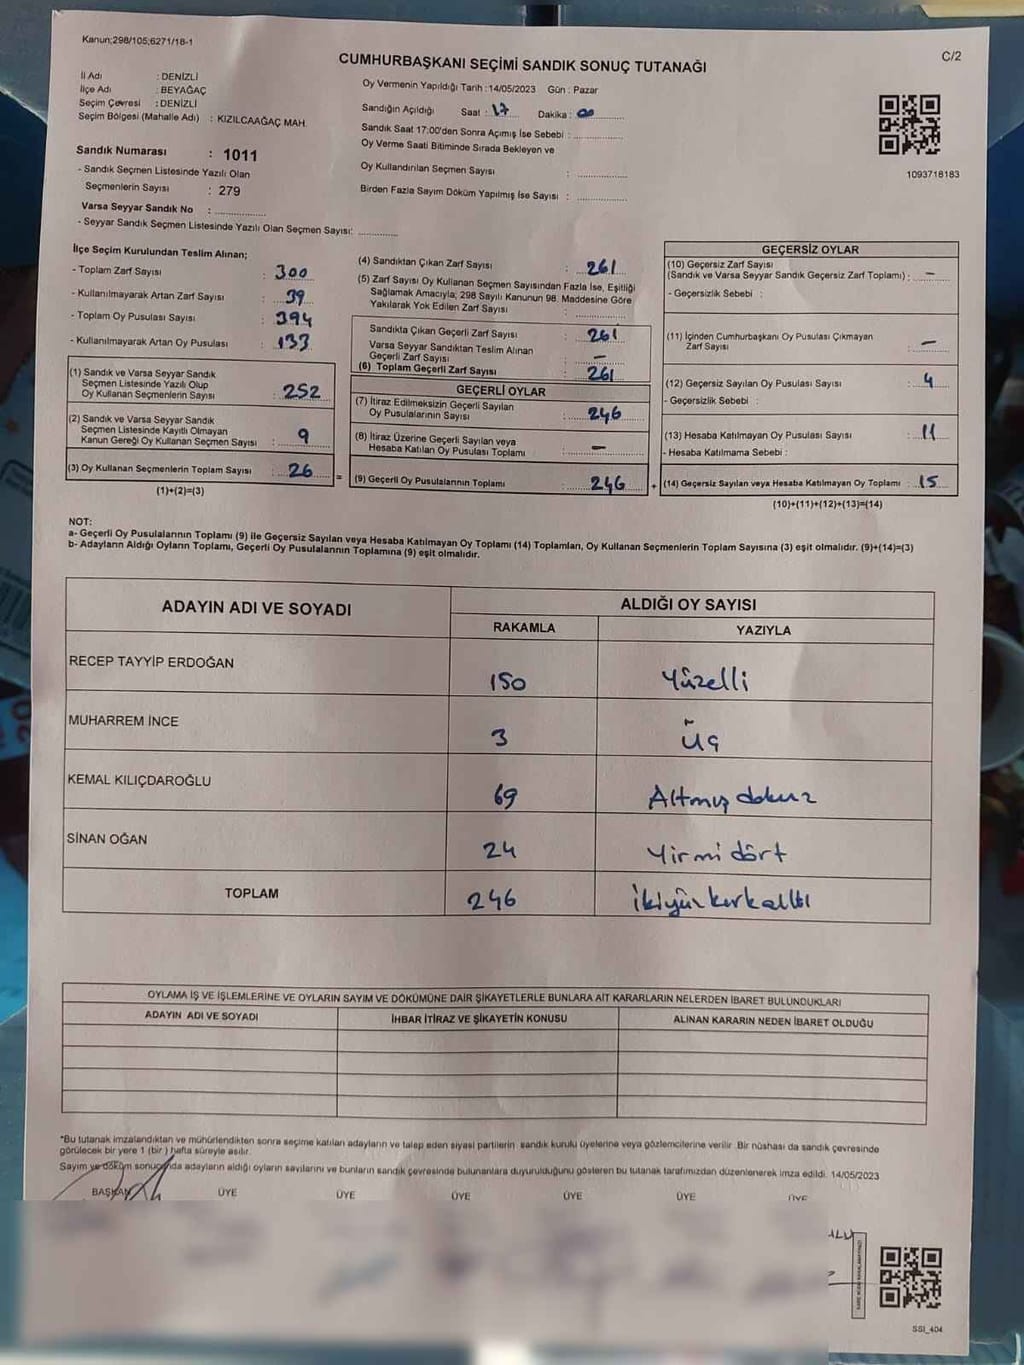 Kanun;298/105;6271/18-1
CUMHURBAŞKANI SEÇİMİ SANDIK SONUÇ TUTANAĞI
C/2
İl Adı : DENİZLİ
İlçe Adı : BEYAĞAÇ
Seçim Çevresi : DENİZLİ
Seçim Bölgesi (Mahalle Adı) : KIZILCAAĞAÇ MAH.
Sandık Numarası : 1011
- Sandık Seçmen Listesinde Yazılı Olan
Seçmenlerin Sayısı : 279
Varsa Seyyar Sandık No : ................
- Seyyar Sandık Seçmen Listesinde Yazılı Olan Seçmen Sayısı: ............
Oy Vermenin Yapıldığı Tarih :14/05/2023 Gün : Pazar
Sandığın Açıldığı Saat : 17 Dakika : 00
Sandık Saat 17:00'den Sonra Açımış İse Sebebi : ................
Oy Verme Saati Bitiminde Sırada Bekleyen ve
Oy Kullandırılan Seçmen Sayısı : ................
Birden Fazla Sayım Döküm Yapılmış İse Sayısı : ................
1093718183
İlçe Seçim Kurulundan Teslim Alınan;
- Toplam Zarf Sayısı : 300
- Kullanılmayarak Artan Zarf Sayısı : 39
- Toplam Oy Pusulası Sayısı : 394
- Kullanılmayarak Artan Oy Pusulası : 133
(1) Sandık ve Varsa Seyyar Sandık
Seçmen Listesinde Yazılı Olup
Oy Kullanan Seçmenlerin Sayısı : 252
(2) Sandık ve Varsa Seyyar Sandık
Seçmen Listesinde Kayıtlı Olmayan
Kanun Gereği Oy Kullanan Seçmen Sayısı : 9
(3) Oy Kullanan Seçmenlerin Toplam Sayısı : 26 =
(1)+(2)=(3)
(4) Sandıktan Çıkan Zarf Sayısı : 261
(5) Zarf Sayısı Oy Kullanan Seçmen Sayısından Fazla İse, Eşitliği
Sağlamak Amacıyla; 298 Sayılı Kanunun 98. Maddesine Göre
Yakılarak Yok Edilen Zarf Sayısı : ................
Sandıkta Çıkan Geçerli Zarf Sayısı : 261
Varsa Seyyar Sandıktan Teslim Alınan
Geçerli Zarf Sayısı : —
(6) Toplam Geçerli Zarf Sayısı : 261
GEÇERLİ OYLAR
(7) İtiraz Edilmeksizin Geçerli Sayılan
Oy Pusulalarının Sayısı : 246
(8) İtiraz Üzerine Geçerli Sayılan veya
Hesaba Katılan Oy Pusulası Toplamı : —
(9) Geçerli Oy Pusulalarının Toplamı : 246 +
GEÇERSİZ OYLAR
(10) Geçersiz Zarf Sayısı
(Sandık ve Varsa Seyyar Sandık Geçersiz Zarf Toplamı) : —
- Geçersizlik Sebebi :
(11) İçinden Cumhurbaşkanı Oy Pusulası Çıkmayan
Zarf Sayısı : —
(12) Geçersiz Sayılan Oy Pusulası Sayısı : 4
- Geçersizlik Sebebi :
(13) Hesaba Katılmayan Oy Pusulası Sayısı : 11
- Hesaba Katılmama Sebebi :
(14) Geçersiz Sayılan veya Hesaba Katılmayan Oy Toplamı : 15
(10)+(11)+(12)+(13)=(14)
NOT:
a- Geçerli Oy Pusulalarının Toplamı (9) ile Geçersiz Sayılan veya Hesaba Katılmayan Oy Toplamı (14) Toplamları, Oy Kullanan Seçmenlerin Toplam Sayısına (3) eşit olmalıdır. (9)+(14)=(3)
b- Adayların Aldığı Oyların Toplamı, Geçerli Oy Pusulalarının Toplamına (9) eşit olmalıdır.
ADAYIN ADI VE SOYADI
ALDIĞI OY SAYISI
RAKAMLA YAZIYLA
RECEP TAYYİP ERDOĞAN 150 Yüzelli
MUHARREM İNCE 3 Üç
KEMAL KILIÇDAROĞLU 69 Altmış dokuz
SİNAN OĞAN 24 Yirmi dört
TOPLAM 246 ikiyüzkırkaltı
OYLAMA İŞ VE İŞLEMLERİNE VE OYLARIN SAYIM VE DÖKÜMÜNE DAİR ŞİKAYETLERLE BUNLARA AİT KARARLARIN NELERDEN İBARET BULUNDUKLARI
ADAYIN ADI VE SOYADI İHBAR İTİRAZ VE ŞİKAYETİN KONUSU ALINAN KARARIN NEDEN İBARET OLDUĞU
*Bu tutanak imzalandıktan ve mühürlendikten sonra seçime katılan adayların ve talep eden siyasi partilerin sandık kurulu üyelerine veya gözlemcilerine verilir .Bir nüshası da sandık çevresinde
görülecek bir yere 1 (bir ) hafta süreyle asılır.
Sayım ve döküm sonucunda adayların aldığı oyların sayılarını ve bunların sandık çevresinde bulunanlara duyurulduğunu gösteren bu tutanak tarafımızdan düzenlenerek imza edildi. 14/05/2023
BAŞKAN ÜYE ÜYE ÜYE ÜYE ÜYE ÜYE
SSI_404